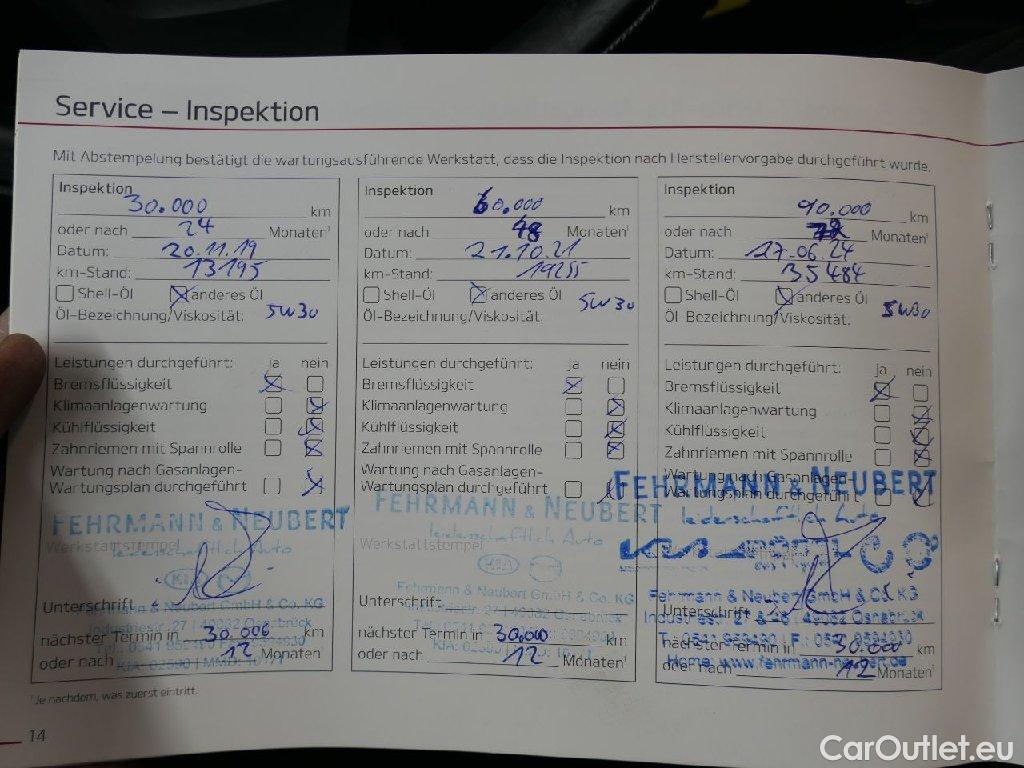 Service – Inspektion
Mit Abstempelung bestätigt die wartungsausführende Werkstatt, dass die Inspektion nach Herstellervorgabe durchgeführt wurde.
Inspektion
30.000 km
oder nach 24 Monaten¹
Datum: 20.11.19
km-Stand: 13195
Shell-Öl anderes Öl
Öl-Bezeichnung/Viskosität: 5W30
Leistungen durchgeführt: ja nein
Bremsflüssigkeit
Klimaanlagenwartung
Kühlflüssigkeit
Zahnriemen mit Spannrolle
Wartung nach Gasanlagen-
Wartungsplan durchgeführt
FEHRMANN & NEUBERT
leidenschaftlich Auto
Werkstattstempel
KIA
Fehrmann & Neubert GmbH & Co. KG
Unterschrift
Industriestr. 27 | 49082 Osnabrück
nächster Termin in 30.000 km
oder nach 12 Monaten¹
Inspektion
60.000 km
oder nach 48 Monaten¹
Datum: 21.10.21
km-Stand: 19255
Shell-Öl anderes Öl
Öl-Bezeichnung/Viskosität: 5W30
Leistungen durchgeführt: ja nein
Bremsflüssigkeit
Klimaanlagenwartung
Kühlflüssigkeit
Zahnriemen mit Spannrolle
Wartung nach Gasanlagen-
Wartungsplan durchgeführt
FEHRMANN & NEUBERT
leidenschaftlich Auto
Werkstattstempel
KIA
Fehrmann & Neubert GmbH & Co. KG
Unterschrift
27 | 49082 Osnabrück
nächster Termin in 30.000 km
oder nach 12 Monaten¹
Inspektion
90.000 km
oder nach 72 Monaten¹
Datum: 27.06.24
km-Stand: 35484
Shell-Öl anderes Öl
Öl-Bezeichnung/Viskosität: 5W30
Leistungen durchgeführt: ja nein
Bremsflüssigkeit
Klimaanlagenwartung
Kühlflüssigkeit
Zahnriemen mit Spannrolle
Wartung nach Gasanlagen-
Wartungsplan durchgeführt
FEHRMANN & NEUBERT
leidenschaftlich Auto
Fehrmann & Neubert GmbH & Co. KG
Unterschrift
49082 Osnabrück
nächster Termin in 30.000 km
Home: www.fehrmann-neubert.de
oder nach 12 Monaten¹
¹Je nachdem, was zuerst eintritt.
14
CarOutlet.eu